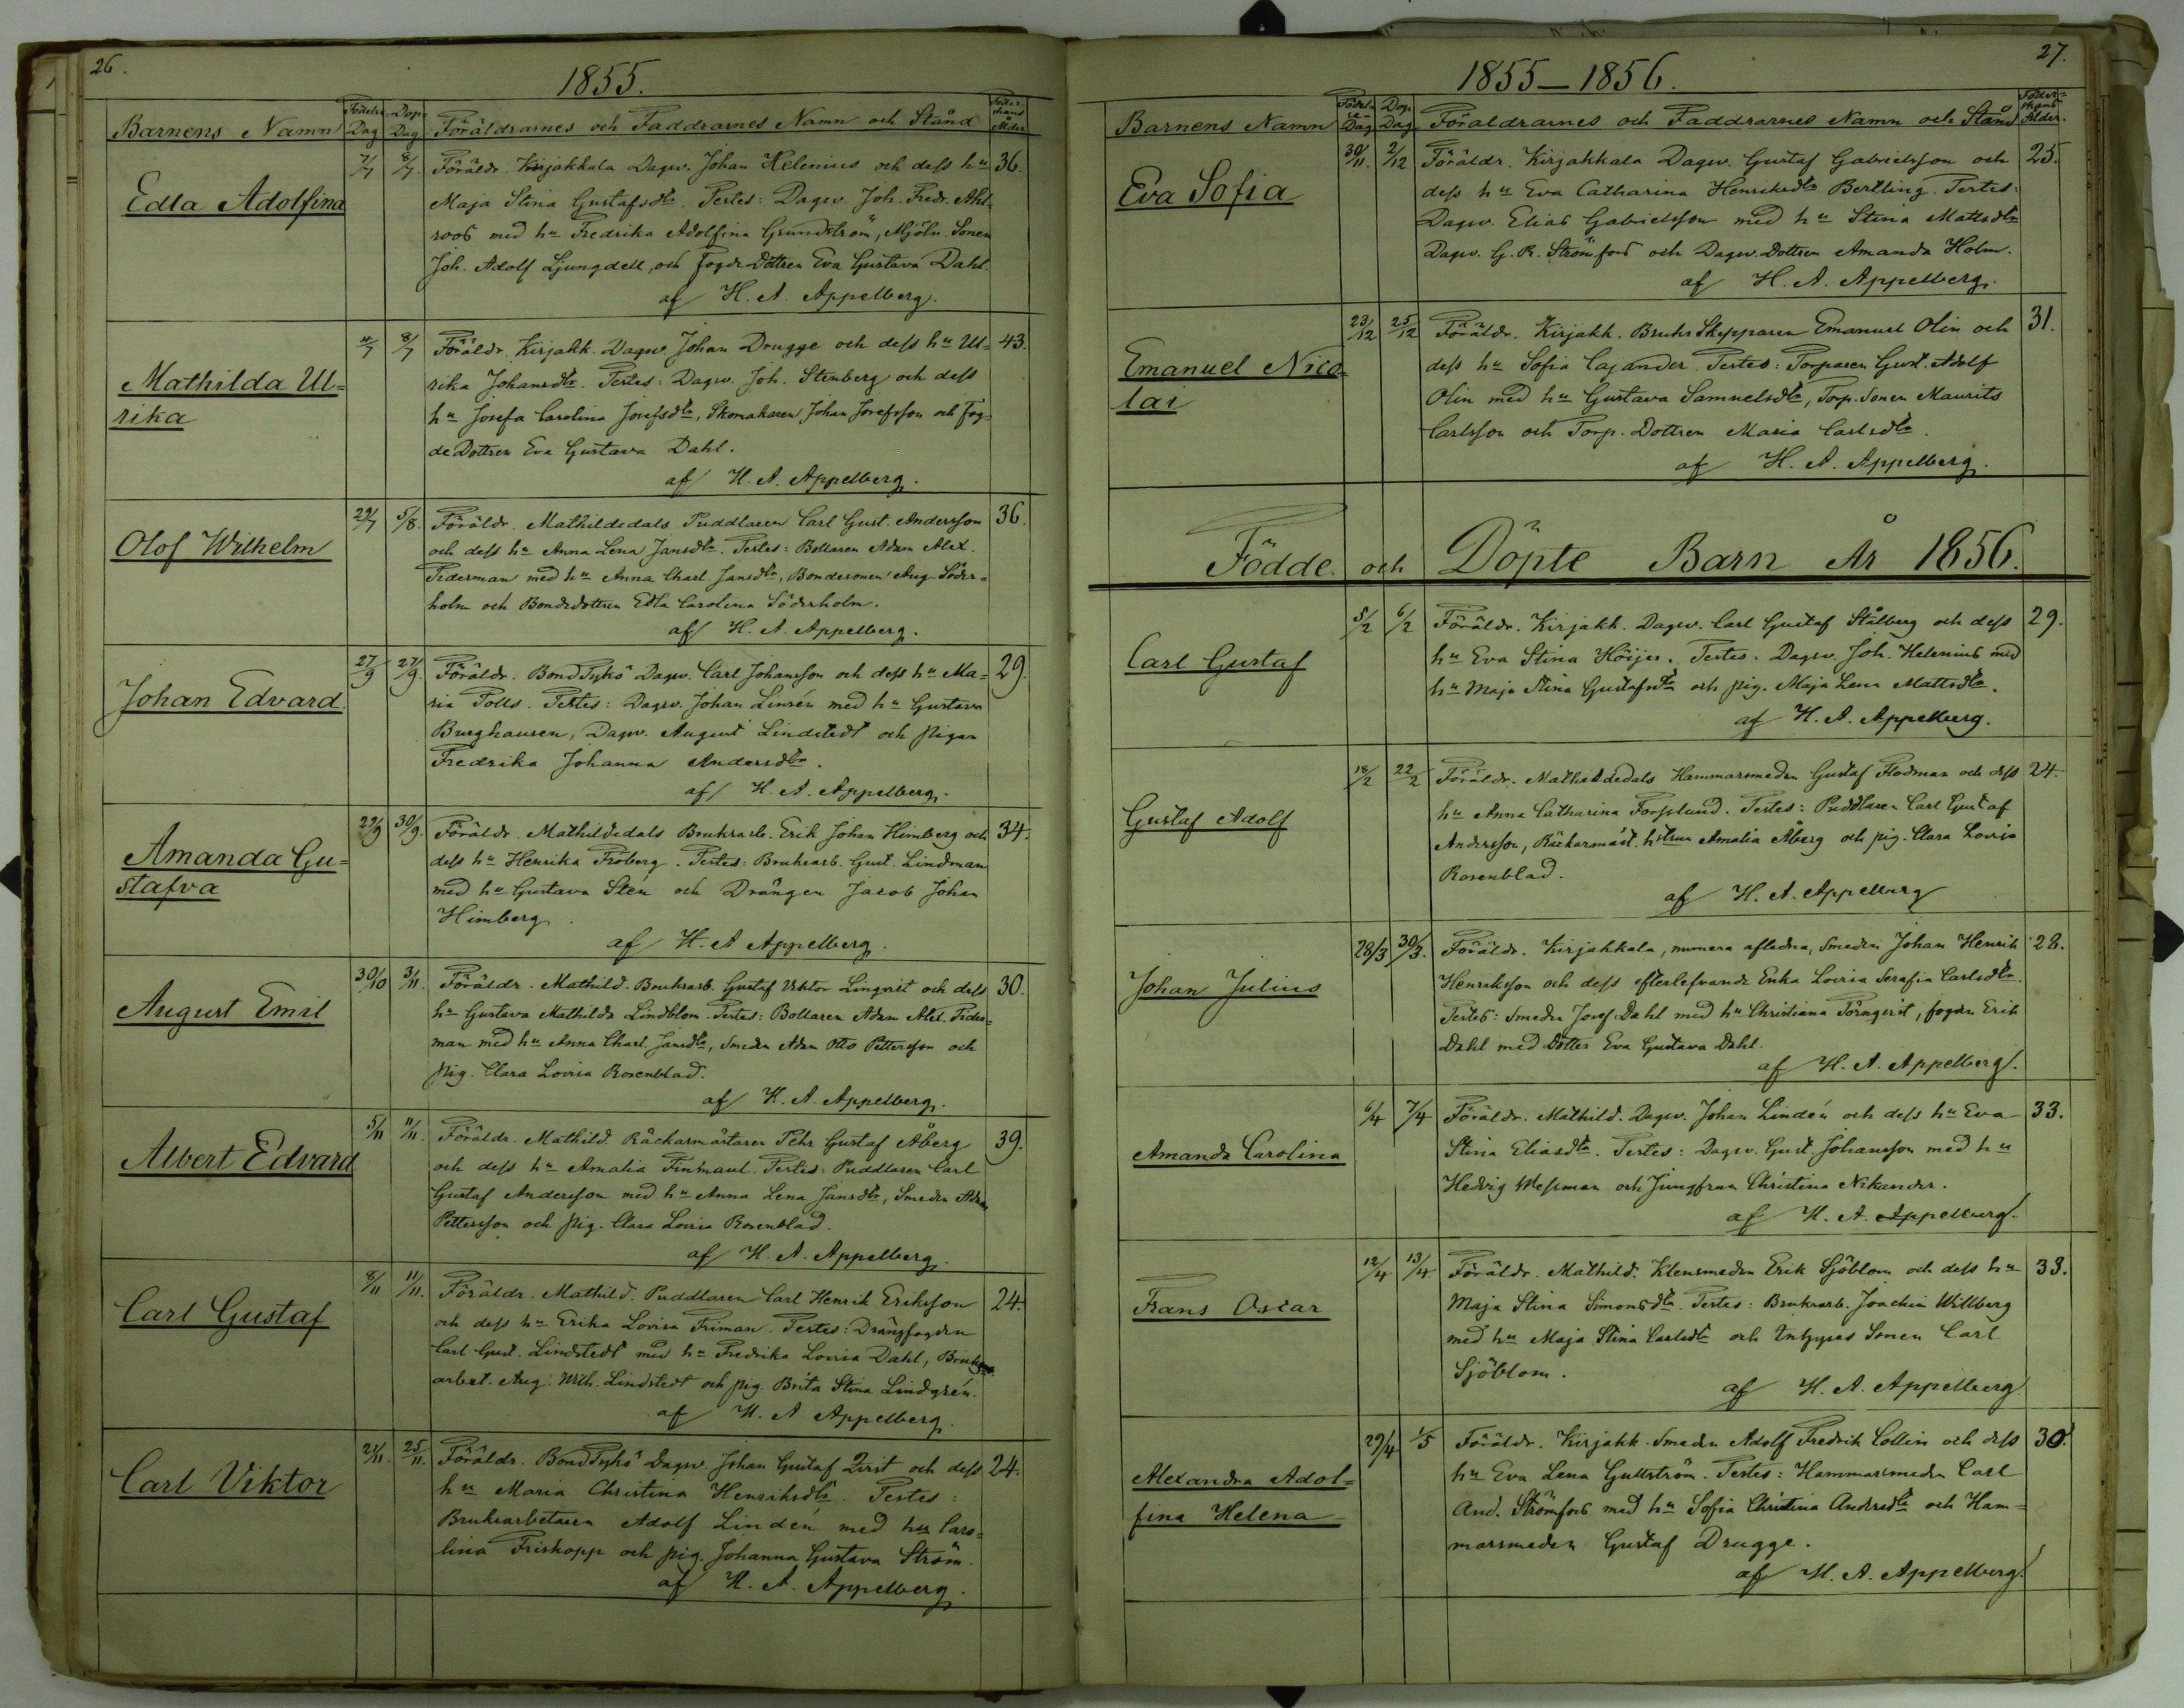 26.
1855.
Barnens Namn Födelse Dag Dop Dag Föräldrarnes och Faddrarnes Namn och Stånd Föderskans Ålder
Edla Adolfina 7/7 8/7 Föräldr. Kirjakkala Dagsv. Johan Helenius och dess hu 36.
Maja Stina Gustafsdtr. Testes: Dagsv. Joh. Fredr. Ahl=
roos med hu Fredrika Adolfina Grundström, Mjöln. Sonen
Joh. Adolf Ljungdell, och Fogde Dottren Eva Gustava Dahl.
af H. A. Appelberg.
Mathilda Ul= 8/7 Föräldr. Kirjakk. Dagsv Johan Drugge och dess hu Ul= 43.
rika rika Johansdtr. Testes: Dagsv. Joh. Stenberg och dess
hu Josefa Carolina Josefsdtr, Skomakaren Johan Josefsson och Fog=
de Dottren Eva Gustava Dahl.
af H. A. Appelberg.
Olof Wilhelm 29/7 5/8. Föräldr. Mathildedals Puddlaren Carl Gust. Andersson 36.
och dess hu Anna Lena Jansdtr. Testes: Bollaren Adam Alex.
Tiderman med hu Anna Charl. Jansdtr, Bondesonen Aug. Söder=
holm och Bondedottren Edla Carolina Söderholm.
af H. A. Appelberg.
Johan Edvard 27/9 27/9. Föräldr. Bond Tykö Dagsv. Carl Johansson och dess hu Ma= 29.
ria Polls. Testes: Dagsv. Johan Linrén med hu Gustava
Burghausen, Dagsv. August Lindstedt och Pigan
Fredrika Johanna Andersdtr.
af H. A. Appelberg.
Amanda Gu= 29/9 30/9. Föräldr. Mathildedals Bruksarb. Erik Johan Himberg och 34.
stafva dess hu Henrika Fröberg. Testes: Bruksarb. Gust. Lindman
med hu Gustava Stén och Drängen Jacob Johan
Himberg.
af H. A Appelberg.
August Emil 30/10 3/11. Föräldr. Mathild. Bruksarb. Gustaf Viktor Linqvist och dess 30.
hu Gustava Mathilda Lindblom. Testes: Bollaren Adam Alex. Tider=
man med hu Anna Charl. Jansdtr, Smeden Adam Otto Pettersson och
Pig. Clara Lovisa Rosenblad.
af H. A. Appelberg.
Albert Edvard 5/11 11/11. Föräldr. Mathild. Räckarmästaren Pehr Gustaf Åberg 39.
och dess hu Amalia Finmaul. Testes: Puddlaren Carl
Gustaf Andersson med hu Anna Lena Jansdtr, Smeden Adam
Pettersson och Pig. Clara Lovisa Rosenblad.
af H. A. Appelberg.
Carl Gustaf 8/11 11/11. Föräldr. Mathild. Puddlaren Carl Henrik Eriksson 24.
och dess hu Erika Lovisa Friman. Testes: Drängfogden
Carl Gust. Lindstedt med hu Fredrika Lovisa Dahl, Bruks
arbet. Aug. Wilh. Lindstedt och pig. Brita Stina Lindgrén.
af H. A Appelberg.
Carl Viktor 21/11. 25/11. Föräldr. Bond Tykö Dagsv. Johan Gustaf Qvist och dess 24.
hu Maria Christina Henriksdtr. Testes:
Bruksarbetaren Adolf Lindén med hu Caro=
lina Friskopp och pig. Johanna Gustava Ström.
af H. A. Appelberg.
27.
1855–1856.
Barnens Namn Födelse Dag Dop Dag Föräldrarnes och Faddrarnes Namn och Stånd Föderskans Ålder.
Eva Sofia 30/11. 2/12 Föräldr. Kirjakkala Dagsv. Gustaf Gabrielsson och 25.
dess hu Eva Catharina Henriksdtr Bertling. Testes:
Dagsv. Elias Gabrielsson med hu Stina Mattsdtr
Dagsv. G. R. Strömfors och Dagsv. Dottren Amanda Holm.
af H. A. Appelberg.
Emanuel Nico= 23/12 25/12 Föräldr. Kirjakk. Bruks Skepparen Emanuel Olin och 31.
lai dess hu Sofia Cajander. Testes: Torparen Gust. Adolf
Olin med hu Gustava Samuelsdtr, Torp. Sonen Maurits
Carlsson och Torp. Dottren Maria Carlsdtr.
af H. A. Appelberg.
Födde och Döpte Barn År 1856.
Carl Gustaf 5/2 6/2 Föräldr. Kirjakk. Dagsv. Carl Gustaf Stålberg och dess 29.
hu Eva Stina Höijer. Testes. Dagsv. Joh. Helenius med
hu Maja Stina Gustafsdtr och pig. Maja Lena Mattsdtr.
af H. A. Appelberg.
Gustaf Adolf 18/2 22/2 Föräldr. Mathildedals Hammarsmeden Gustaf Flodman och dess 24.
hu Anna Catharina Forsslund. Testes: Puddlaren Carl Gustaf
Andersson, Räckarmäst. hstrun Amalia Åberg och pig. Clara Lovisa
Rosenblad.
af H. A. Appelberg
Johan Julius 28/3 30/3. Föräldr. Kirjakkala, numera aflidna, Smeden Johan Henrik 28.
Henriksson och dess efterlefvande Enka Lovisa Serafia Carlsdtr.
Testes: Smeden Josef Dahl med hu Christiana Törnqvist, fogden Erik
Dahl med Dotter Eva Gustava Dahl.
af H. A. Appelberg.
Amanda Carolina 6/4 7/4 Föräldr. Mathild. Dagsv. Johan Lindén och dess hu Eva 33.
Stina Eliasdtr. Testes: Dagsv. Gust. Johansson med hu
Hedvig Messman och Jungfrun Christina Nikander.
af H. A. Appelberg.
Frans Oscar 12/4 13/4 Föräldr. Mathild. Klensmeden Erik Sjöblom och dess hu 33.
Maja Stina Simonsdtr. Testes: Bruksarb. Joachim Willberg
med hu Maja Stina Carlsdtr och Inhyses Sonen Carl
Sjöblom.
af H. A. Appelberg.
Alexandra Adol= 29/4 1/5 Föräldr. Kirjakk. Smeden Adolf Fredrik Collin och dess 30.
fina Helena hu Eva Lena Gullström. Testes: Hammarsmeden Carl
And. Strömfors med hu Sofia Christina Andersdtr och Ham=
marsmeden Gustaf Drugge.
af H. A. Appelberg.